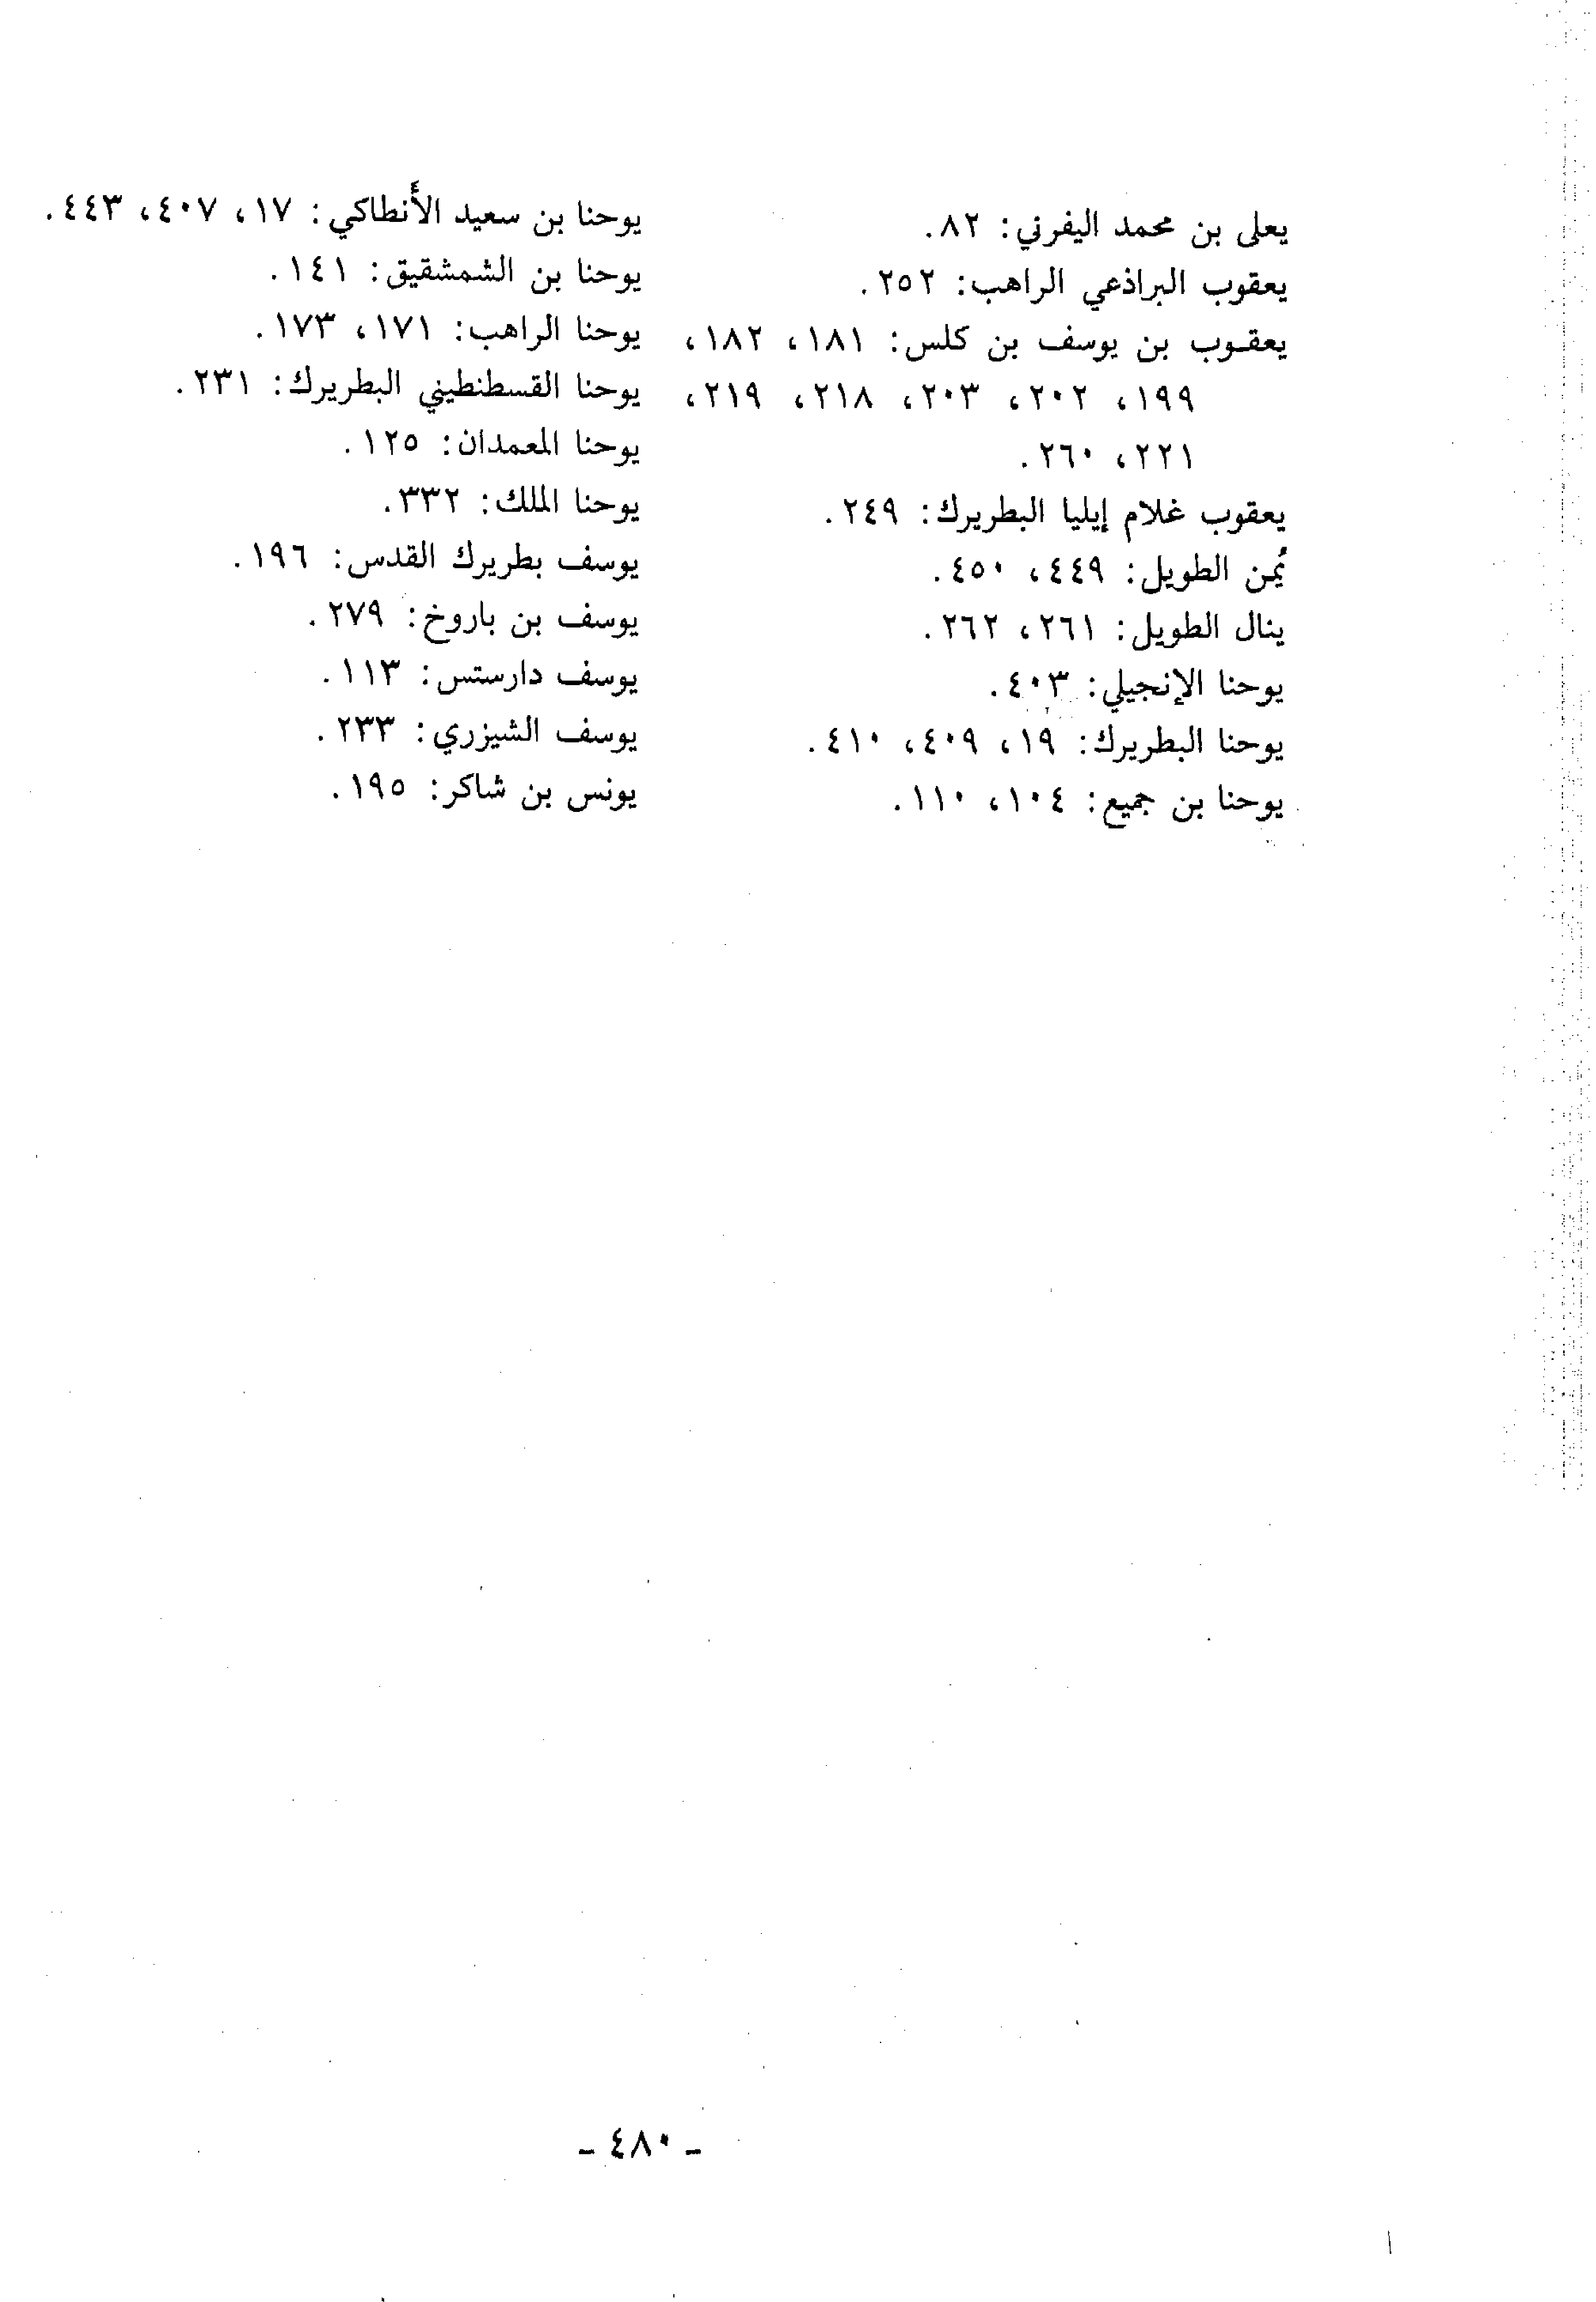 يعلى بن محمد اليفرني: ٨٢.
يعقوب البراذعي الراهب: ٢٥٢.
يعقـوب بن يوسف بن كلس: ١٨١، ١٨٢،
١٩٩، ٢٠٢، ٢٠٣، ٢١٨، ٢١٩،
٢٢١، ٢٦٠.
يعقوب غلام إيليا البطريرك: ٢٤٩.
يُمن الطويل: ٤٤٩، ٤٥٠.
ينال الطويل: ٢٦١، ٢٦٢.
يوحنا الإنجيلي: ٤٠٣.
يوحنا البطريرك: ١٩، ٤٠٩، ٤١٠.
يوحنا بن جميع: ١٠٤، ١١٠.
يوحنا بن سعيد الأنطاكي: ١٧، ٤٠٧، ٤٤٣.
يوحنا بن الشمشقيق: ١٤١.
يوحنا الراهب: ١٧١، ١٧٣.
يوحنا القسطنطيني البطريرك: ٢٣١.
يوحنا المعمدان: ١٢٥.
يوحنا الملك: ٣٣٢.
يوسف بطريرك القدس: ١٩٦.
يوسف بن باروخ: ٢٧٩.
يوسف دارستس: ١١٣.
يوسف الشيزري: ٢٣٣.
يونس بن شاكر: ١٩٥.
- ٤٨٠ -